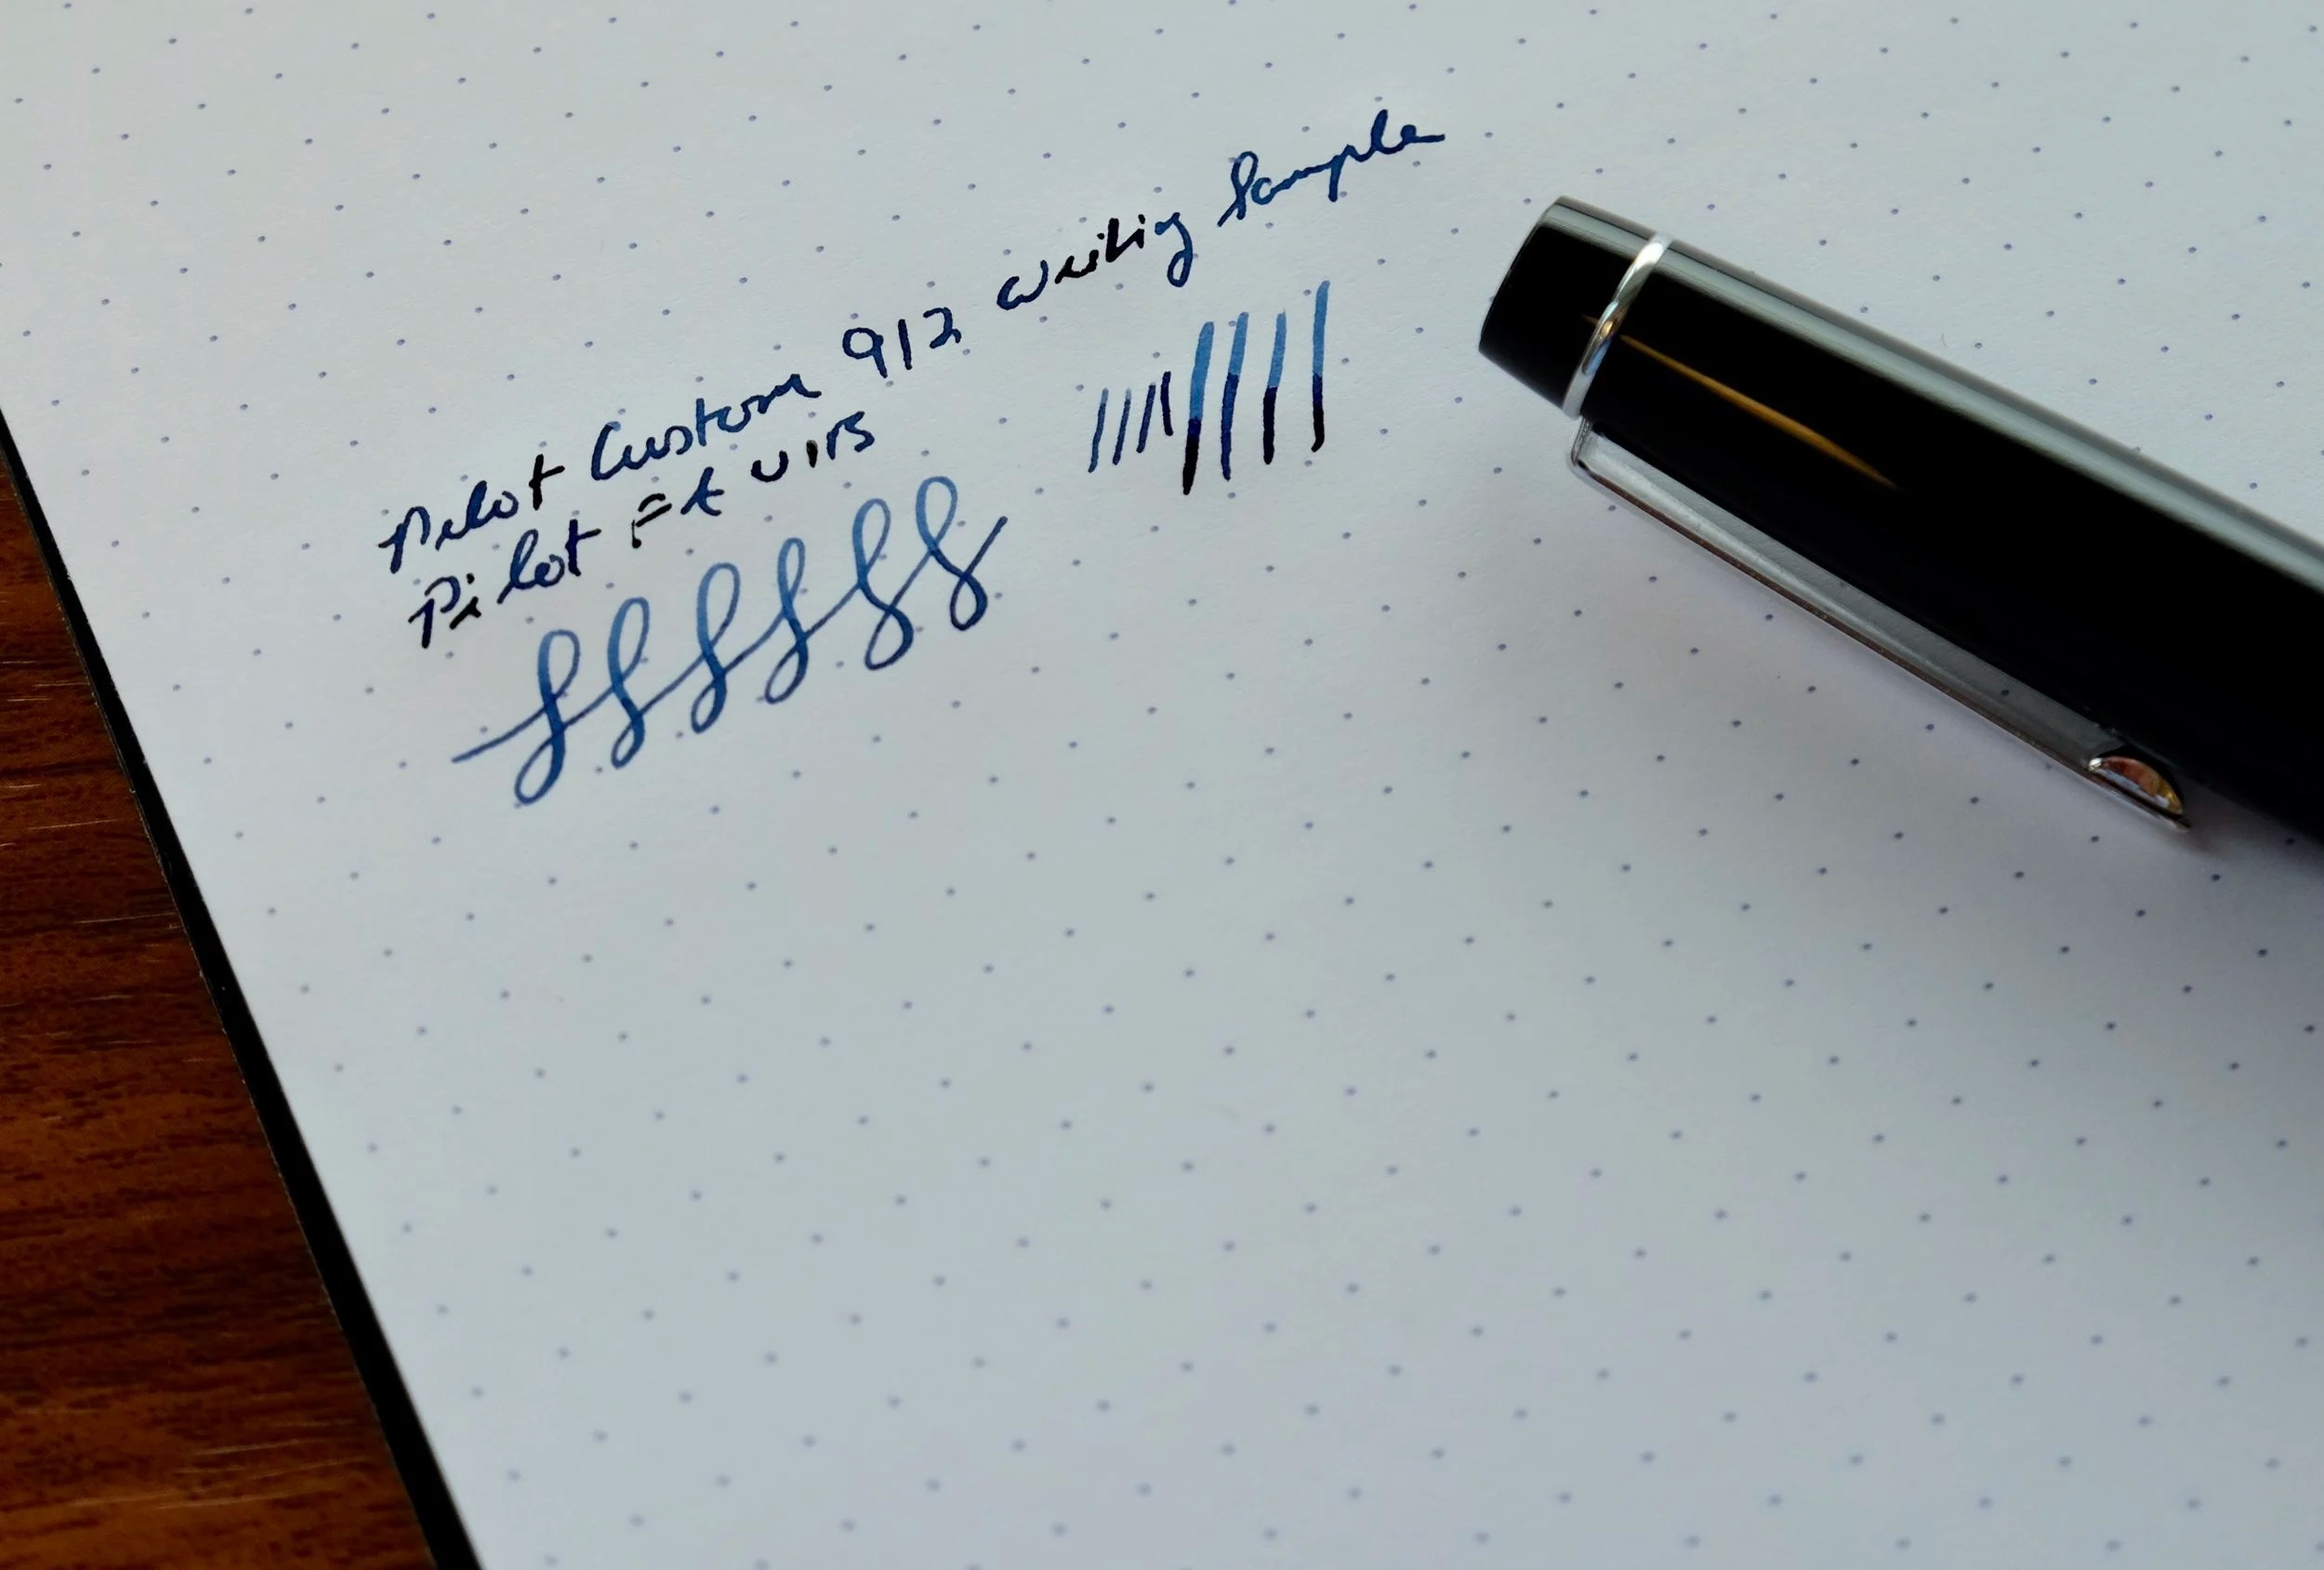 Pilot Custom 912 writing Sample
Pilot